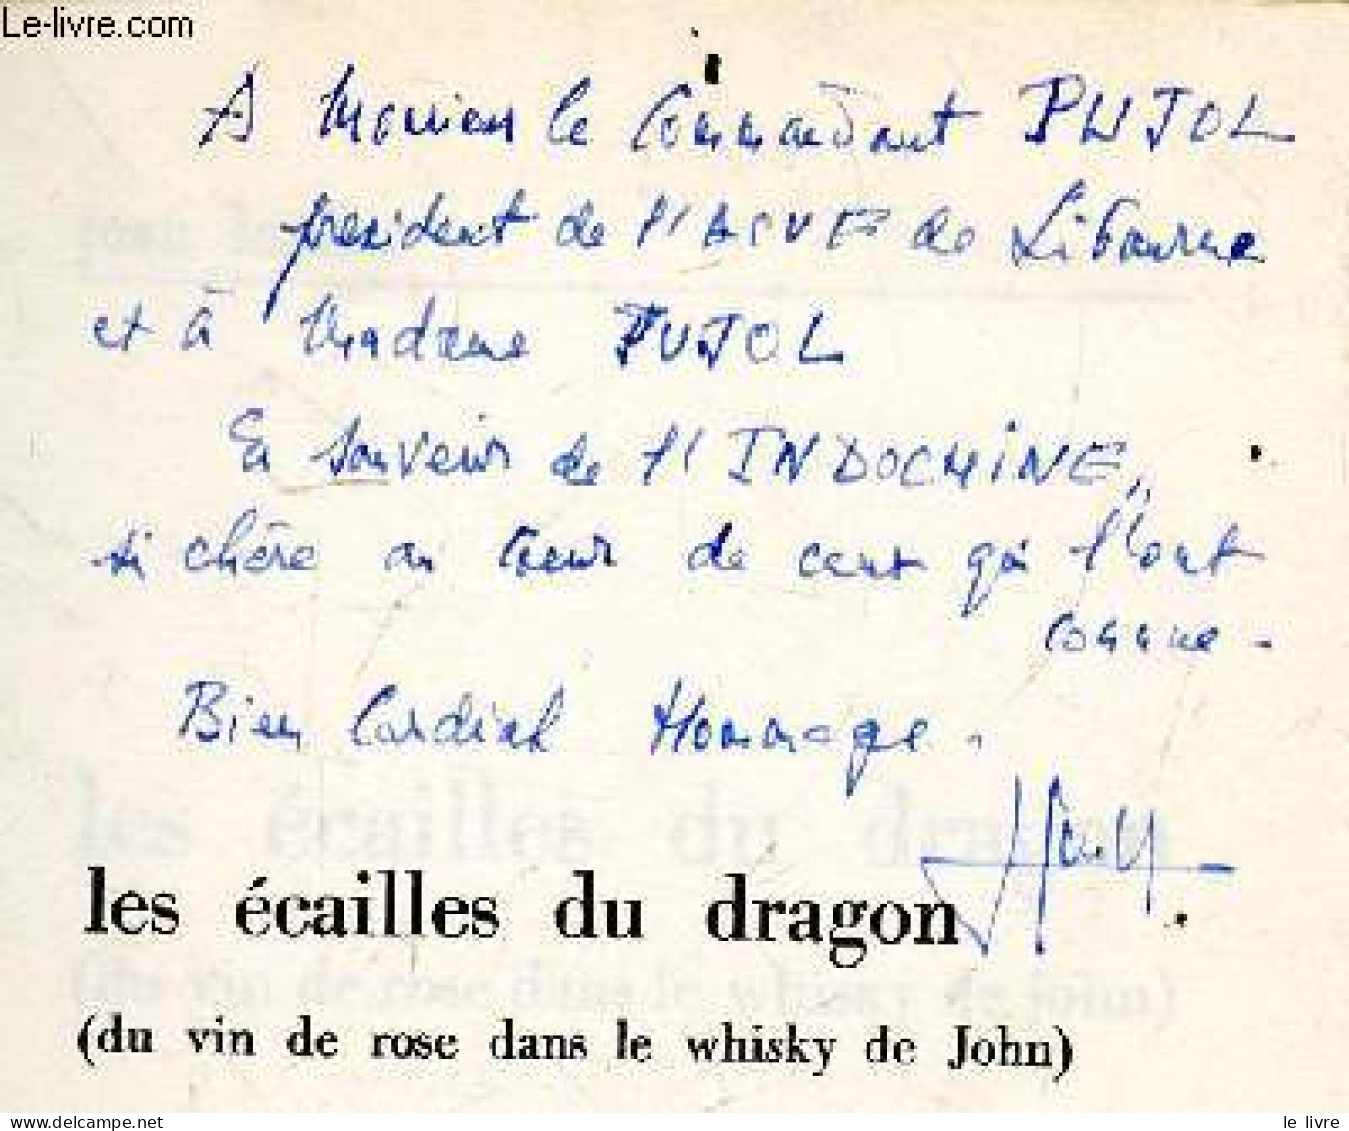 Le-livre.com
A Monsieur le Commandant PUJOL
président de l'ACUF de Libourne
et à Madame PUJOL
En souvenir de l'INDOCHINE,
si chère au coeur de ceux qui l'ont
connue -
Bien Cordial Hommage.
les écailles du dragon
(du vin de rose dans le whisky de John)
le livre